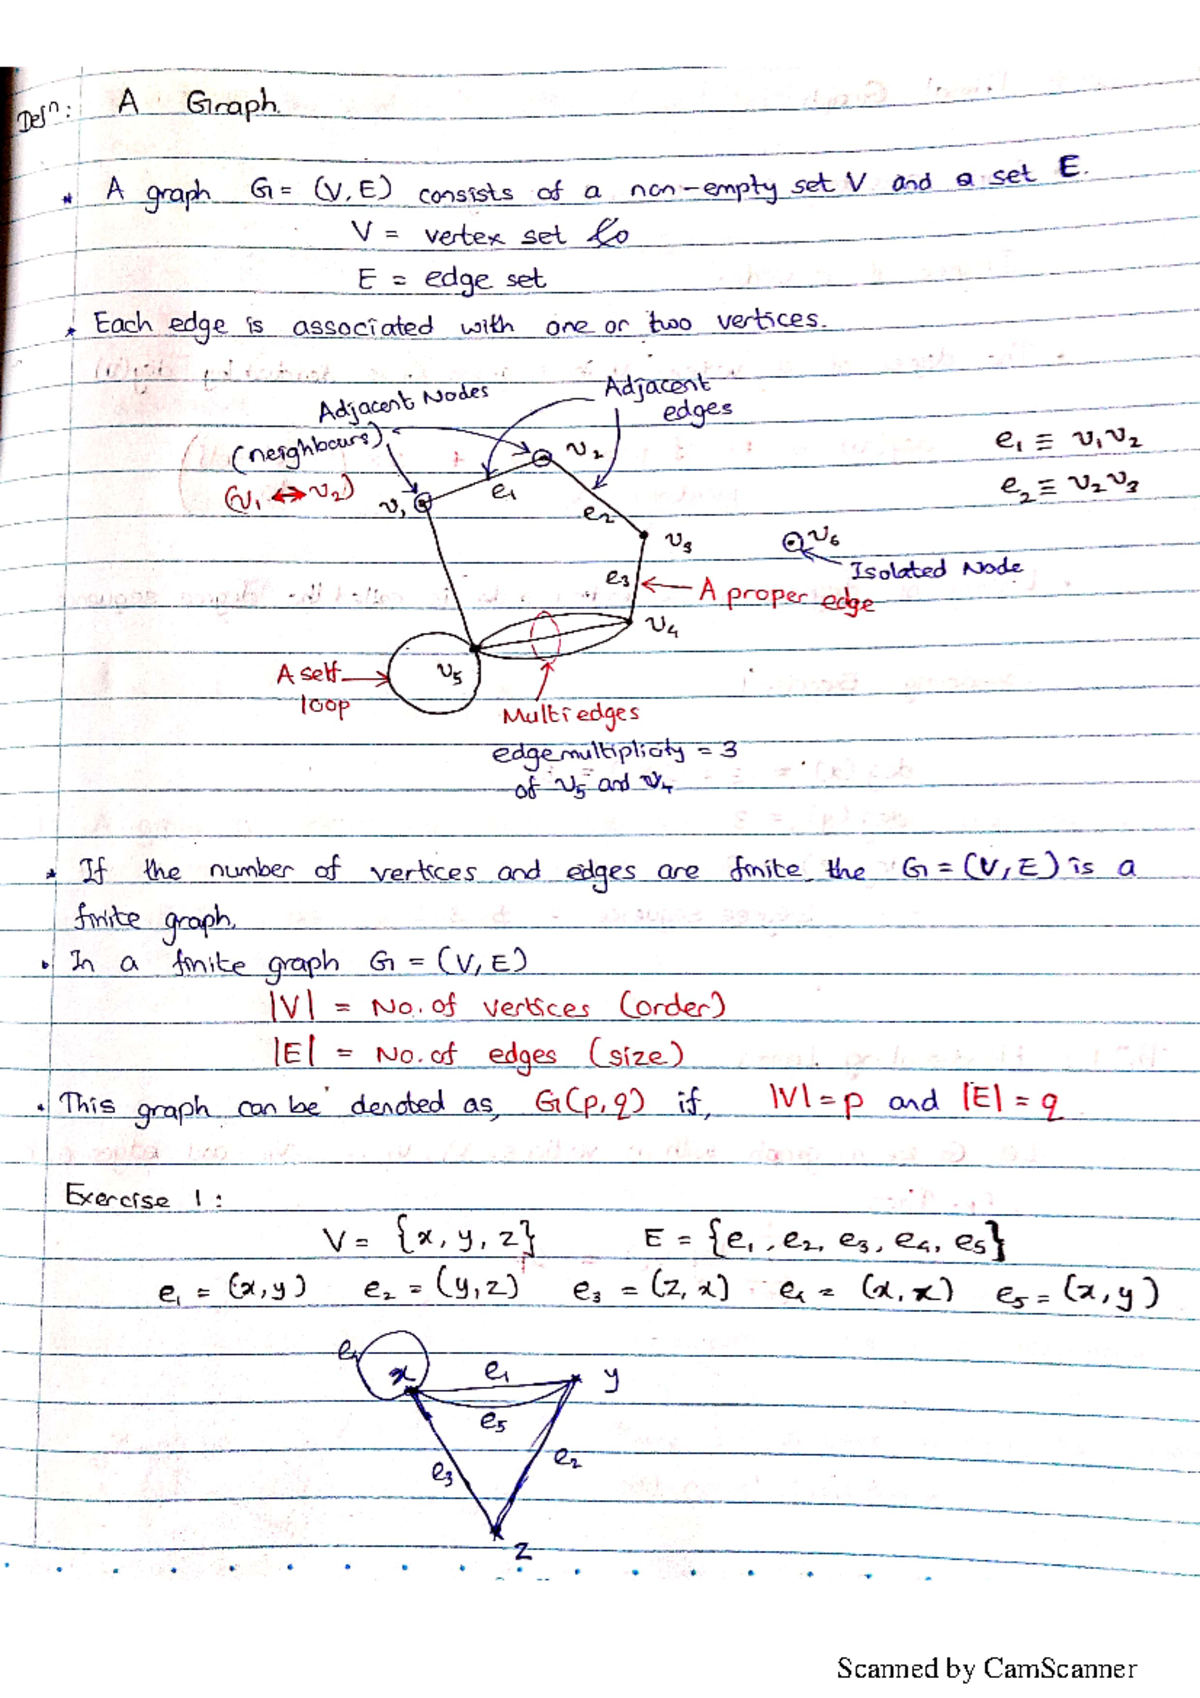 Defⁿ: A Graph.
* A graph G = (V, E) consists of a non-empty set V and a set E.
V = vertex set
E = edge set
* Each edge is associated with one or two vertices.
Adjacent Nodes
(neighbours)
(v₁ ↔ v₂)
Adjacent
edges
e₁ ≡ v₁v₂
e₂ ≡ v₂v₃
v₁
e₁
v₂
e₂
v₃
v₆
Isolated Node
e₃
A proper edge
v₄
A self
loop
v₅
Multi edges
edge multiplicity = 3
of v₅ and v₄
* If the number of vertices and edges are finite, the G = (V, E) is a
finite graph.
• In a finite graph G = (V, E)
|V| = No. of vertices (order)
|E| = No. of edges (size)
• This graph can be denoted as, G(p, q) if, |V| = p and |E| = q
Exercise 1:
V = {x, y, z} E = {e₁, e₂, e₃, e₄, e₅}
e₁ = (x, y) e₂ = (y, z) e₃ = (z, x) e₄ = (x, x) e₅ = (x, y)
e₄
x
e₁
y
e₅
e₃
e₂
z
Scanned by CamScanner